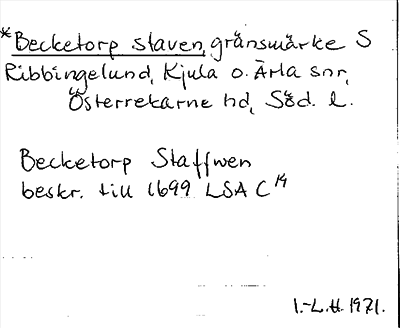 *Becketorp staven, gränsmärke S
Ribbingelund, Kjula o. Ärla snr,
Österrekarne hd, Söd. l.
Becketorp Staffwen
beskr. till 1699 LSA C14
I.-L.H. 1971.